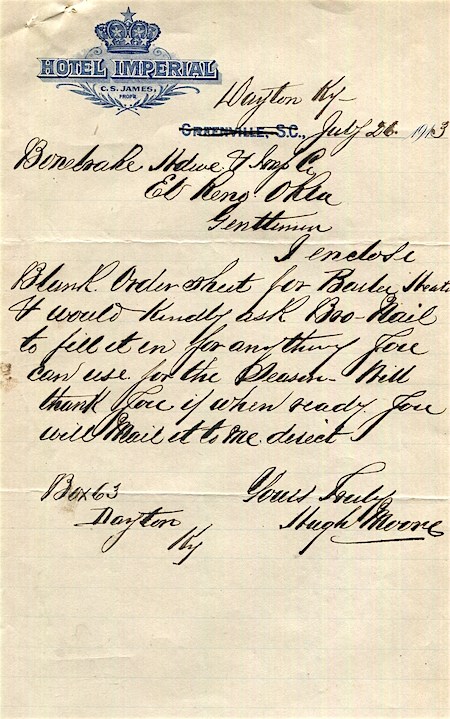 HOTEL IMPERIAL
C. S. JAMES,
PROPR.
Dayton Ky-
GREENVILLE, S.C., July 26 1913
Bonebrake Hdwe & Imp Co
El Reno Okla
Gentlemen
I enclose
Blank Order sheet for Heats
& would Kindly ask
to fill it in for anything You
can use for the Season- Will
thank You if when ready You
will Mail it to me direct
Box 63
Yours Truly
Dayton
Hugh Moore
Ky